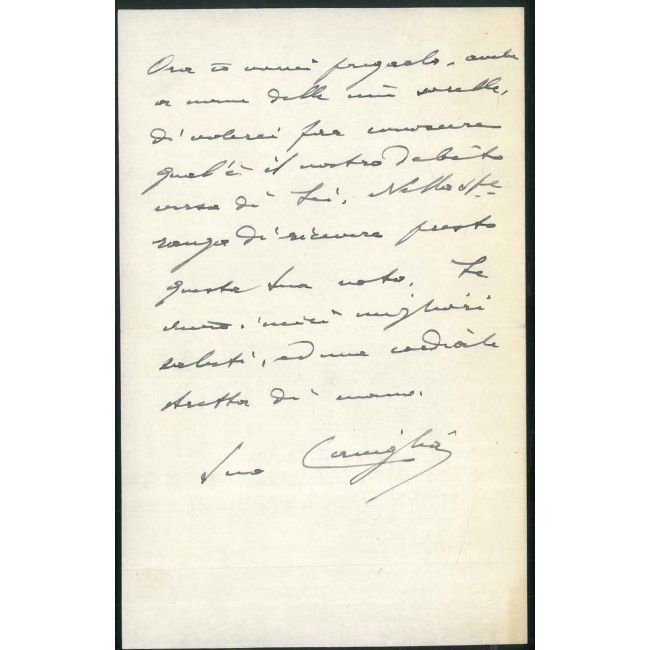 Ora io vorrei pregarlo, anche
a nome delle mie sorelle,
di volerci far conoscere
qual'è il nostro debito
verso di Lei. Nella spe
ranza di ricevere presto
questa Sua nota, Le
invio i miei migliori
saluti, ed una cordiale
stretta di mano.
Suo Caniglia